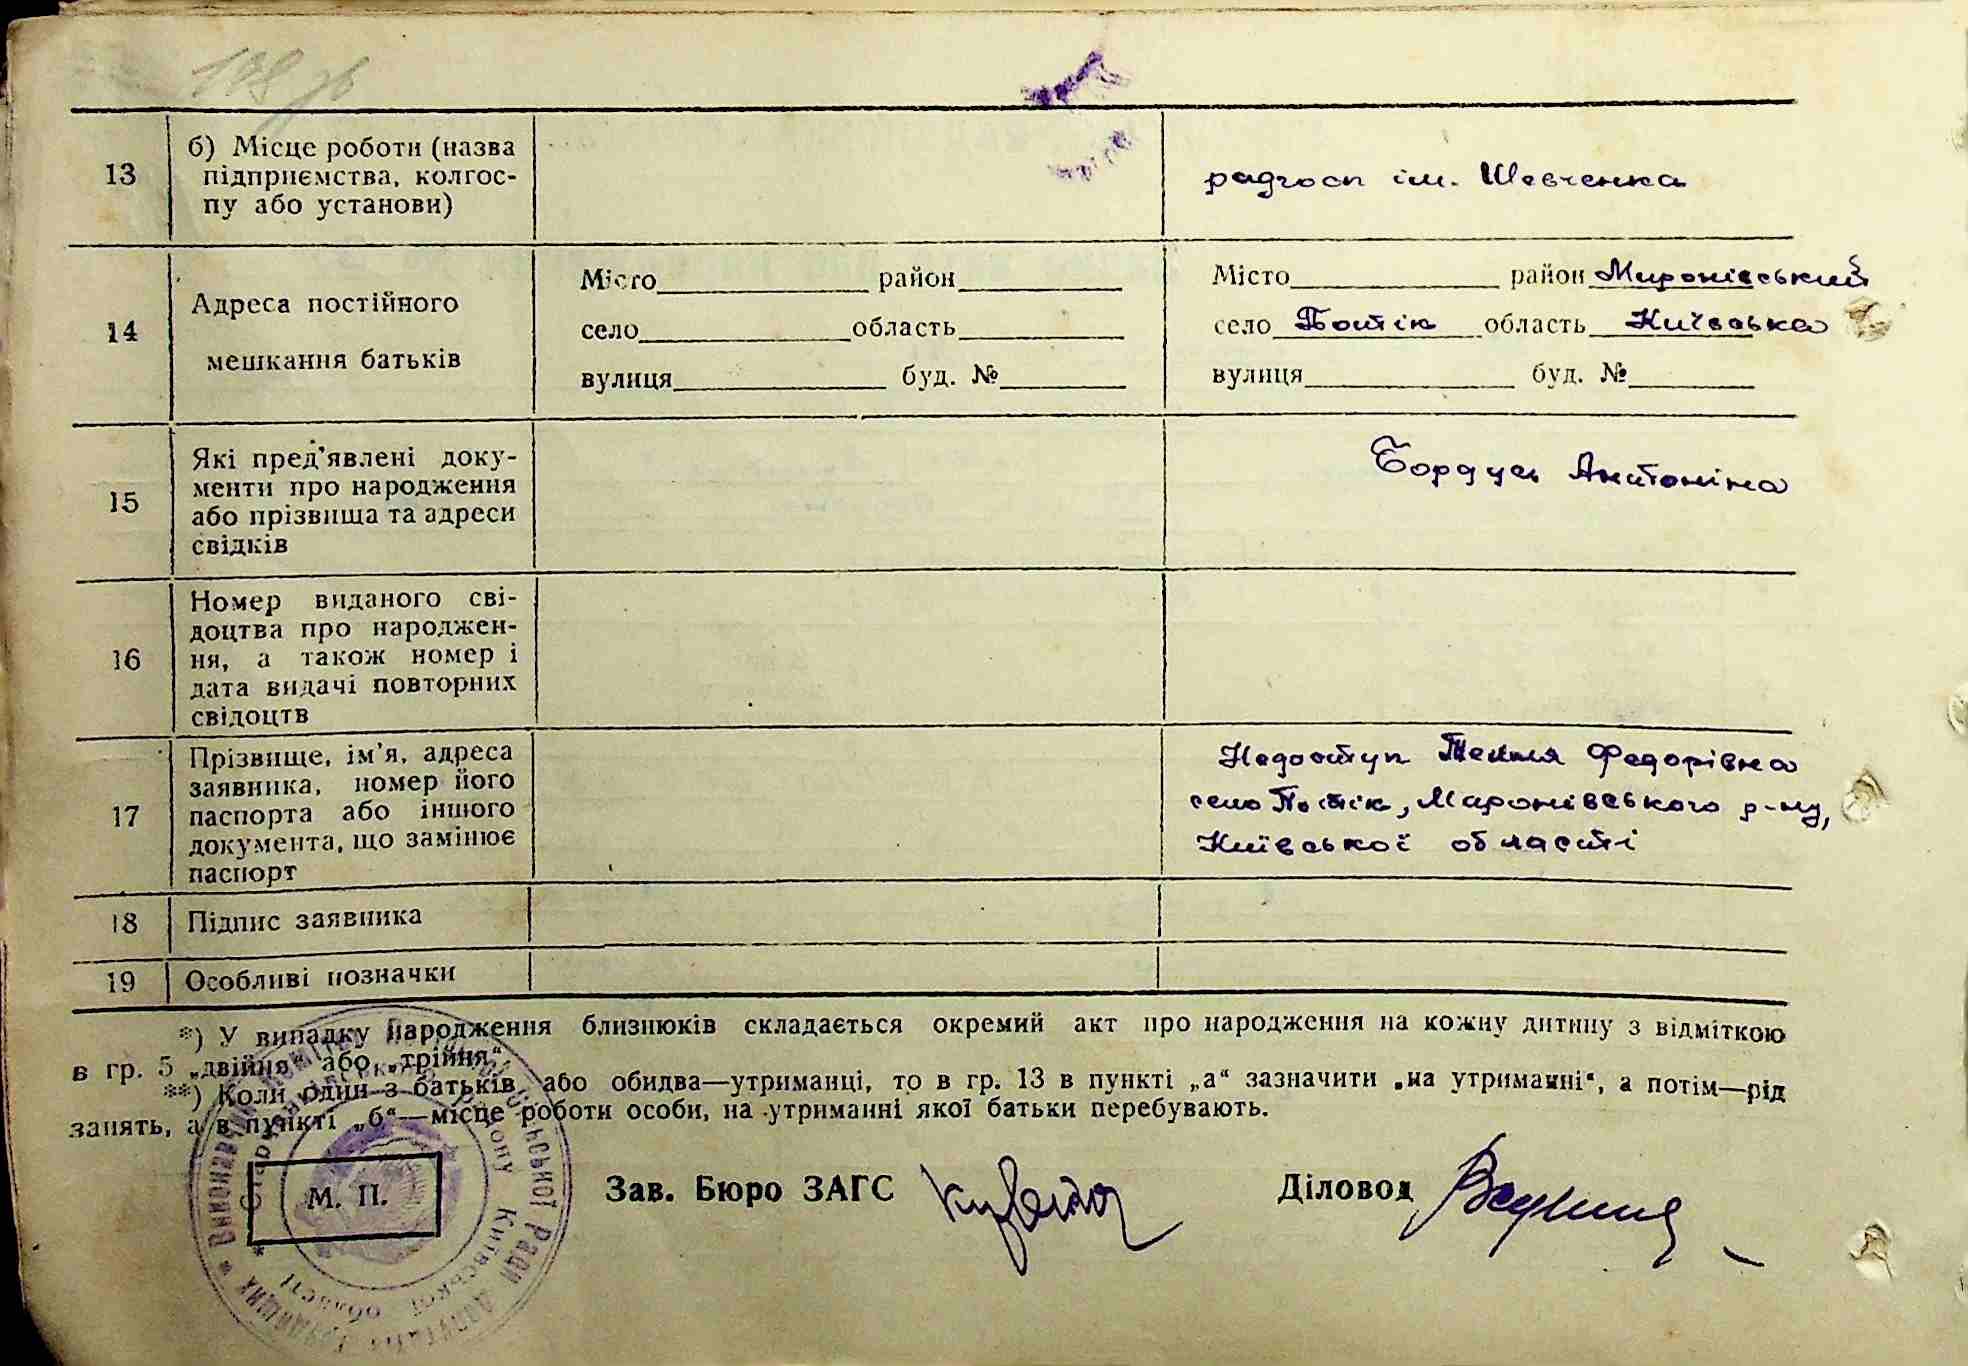 13
б) Місце роботи (назва
підприємства, колгос-
пу або установи)
радгосп ім. Шевченка
14
Адреса постійного
мешкання батьків
Місто район
село область
вулиця буд. №
Місто район Миронівський
село Потік область Київська
вулиця буд. №
15
Які пред'явлені доку-
менти про народження
або прізвища та адреси
свідків
Бордусь Антоніна
16
Номер виданого сві-
доцтва про народжен-
ня, а також номер і
дата видачі повторних
свідоцтв
17
Прізвище, ім'я, адреса
заявника, номер його
паспорта або іншого
документа, що замінює
паспорт
Недоступ Текля Федорівна
село Потік, Миронівського р-ну,
Київської області
18
Підпис заявника
19
Особливі позначки
*) У випадку народження близнюків складається окремий акт про народження на кожну дитину з відміткою
в гр. 5 „двійня" або „трійня"
**) Коли один з батьків або обидва—утриманці, то в гр. 13 в пункті „а" зазначити „на утриманні", а потім—рід
занять, а в пункті „б"—місце роботи особи, на утриманні якої батьки перебувають.
М. П.
Зав. Бюро ЗАГС
Діловод